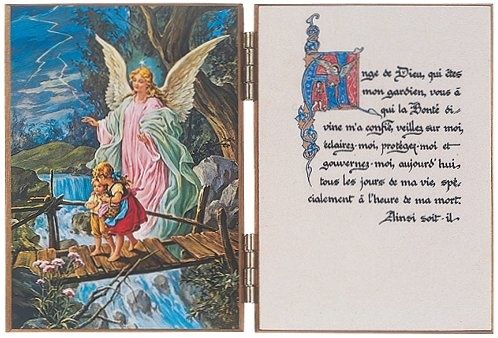 Ange de Dieu, qui êtes
mon gardien, vous à
qui la Bonté di-
vine m'a confié, veillez sur moi,
éclairez-moi, protégez-moi et
gouvernez-moi, aujourd'hui,
tous les jours de ma vie, spé-
cialement à l'heure de ma mort.
Ainsi soit-il.